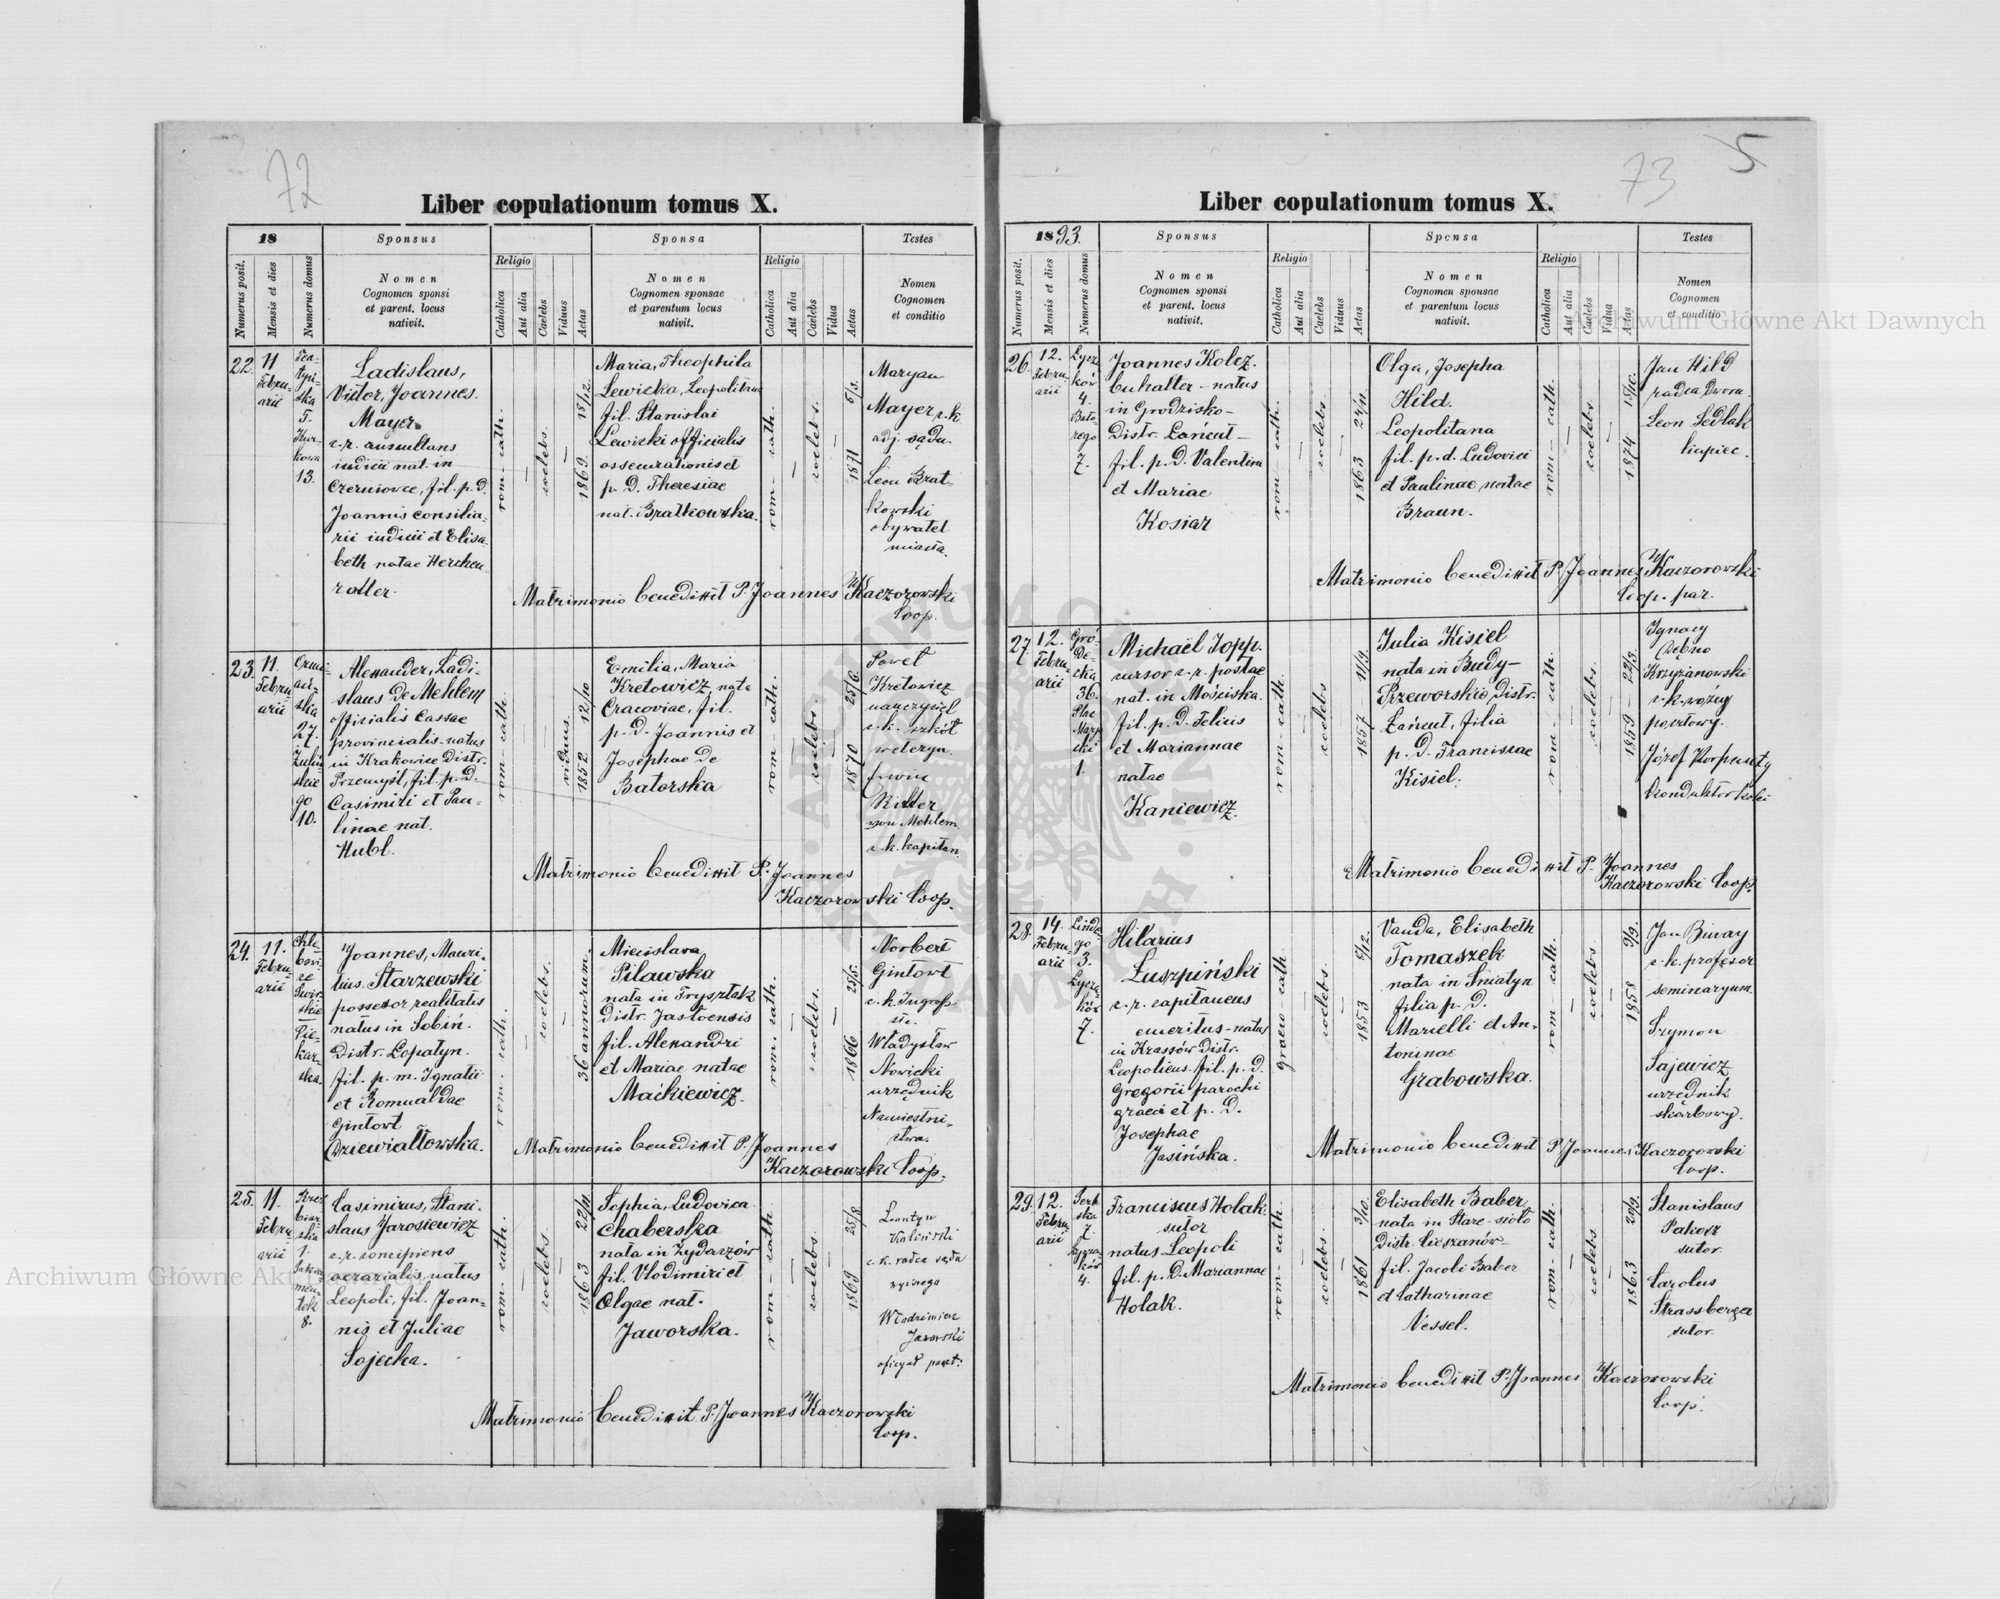 72
Liber copulationum tomus X.
18
Sponsus
Sponsa
Testes
Numerus posit.
Mensis et dies
Numerus domus
Nomen
Cognomen sponsi
et parent. locus
nativit.
Religio
Catholica
Aut alia
Caelebs
Viduus
Aetas
Nomen
Cognomen sponsae
et parentum locus
nativit.
Religio
Catholica
Aut alia
Caelebs
Vidua
Aetas
Nomen
Cognomen
et conditio
22.
11
Febru-
arii
5.
13.
Ladislaus,
Victor, Joannes.
Mayer
c.r. auscultans
iudicii nat. in
Czerniovce, fil. p. D.
Joannis consilia-
rii iudicii et Elisa-
beth natae Herchen-
roller.
rom- cath.
coelebs.
1869. 18/12.
Maria, Theophila
Lewicka, Leopolitana
fil. Stanislai
Lewicki officialis
assecurationis et
p. D. Theresiae
nat. Bratkowska.
rom- cath.
coelebs.
1871 6/1.
Maryan
Mayer c.k
adj. sądu.
Leon Brat-
kowski
obywatel
miasta.
Matrimonio benedixit P. Joannes Kaczorowski
Coop.
23.
11.
Febru-
arii
27.
10.
Alexander, Ladi-
slaus De Mehlem
officialis Cassae
provincialis-natus
in Krakowice Distr.
Przemyśl, fil. p. D.
Casimiri et Pau-
linae nat.
Hubl.
rom- cath.
viduus.
1852 12/10
Emilia, Maria
Kretowicz, nata
Cracoviae, fil.
p. D. Joannis et
Josephae De
Batorska
rom- cath.
coelebs.
1870 25/6.
Kretowicz
nauczyciel
c.k. szkół
weteryn.
Erwin
Ritter
von Mehlem.
c.k. kapitan.
Matrimonio benedixit P. Joannes
Kaczorowski Coop.
24.
11.
Febru-
arii
Joannes, Mauri-
tius. Starzewski
possessor realitatis
natus in Sobin.
Distr. Lopatyn.
fil. p. m. Ignatii
et Romualdae
Gintowt
Dziewiałtowska.
rom. cath.
coelebs.
36 annorum.
Miecislava
Pilawska
nata in Frysztak
Distr. Jastoensis
fil. Alexandri
et Mariae natae
Maćkiewicz.
rom. cath.
coelebs.
1866 25/5.
Norbert
Gintowt
c.k. Ingross-
Władysław
Nowicki
urzędnik
Namiestni-
ctwa.
Matrimonio benedixit P. Joannes
Kaczorowski Coop.
25.
11.
Febru-
arii
1.
8.
Casimirus, Stani-
slaus Jarosiewicz
c.r. concipiens
aerarialis, natus
Leopoli, fil. Joan-
nis et Juliae
Sojecka.
rom. cath.
coelebs.
1863 22/11.
Sophia, Ludovica
Chaberska
nata in Żydaczów
fil. Vlodimiri et
Olgae nat.
Jaworska.
rom- cath
coelebs.
1869 25/8
Leontyn
Kaliński
c.k. radca sądu
Włodzimierz
Jaworski
oficyał poczt.
Matrimonio benedixit P. Joannes Kaczorowski
Coop.
73
5
Liber copulationum tomus X.
1893.
Sponsus
Sponsa
Testes
Numerus posit.
Mensis et dies
Numerus domus
Nomen
Cognomen sponsi
et parent. locus
nativit.
Religio
Catholica
Aut alia
Caelebs
Viduus
Aetas
Nomen
Cognomen sponsae
et parentum locus
nativit.
Religio
Catholica
Aut alia
Caelebs
Vidua
Aetas
Nomen
Cognomen
et conditio
26.
12.
Febru-
arii
Łycza-
ków
4.
Bato-
rego
7.
Joannes Kolcz.
buhalter - natus
in Grodzisko-
Distr. Łańcut-
fil. p. D. Valentini
et Mariae
Kosiar
rom- cath.
coelebs.
1863 24/11.
Olga, Josepha
Hild.
Leopolitana
fil. p. d. Ludovici
et Paulinae, natae
Braun.
rom- cath.
coelebs.
1874 15/10.
Jan Hild
radca Dworu.
Leon Sedlak
kupiec.
Matrimonio benedixit P. Joannes Kaczorowski
Coop. par.
27.
12.
Febru-
arii
Gró-
de-
cka
36.
Plac
Marja-
cki
1.
Michaël Zopp.
cursor c.r. postae
nat. in Mościska.
fil. p. D. Felicis
et Mariannae
natae
Kaniewicz.
rom- cath.
coelebs
1857 - 11/9.
Julia Kisiel
nata in Budy-
Przeworskie, Distr.
Łańcut, filia
p. D. Franciscae
Kisiel.
rom- cath.
coelebs.
1859 - 22/3.
Ignacy
Krzyżanowski
c.k. woźny
pocztowy.
Józef Korpunty
konduktor kolei
Matrimonio benedixit P. Joannes
Kaczorowski Coop.
28.
14.
Febru-
arii
Linde-
go
3.
Łycza-
ków
7.
Hilarius
Łuszpiński
c.r. capitaneus
emeritus-natus
in Krassów distr.
Leopoliens. fil. p. D.
Gregorii parochi
graeci et p. D.
Josephae
Jasińska.
graeco- cath.
coelebs.
1853 5/12.
Vanda, Elisabeth
Tomaszek
nata in Śniatyn
filia p. D.
Marcelli et An-
toninae
Grabowska.
rom- cath.
coelebs
1858 9/9.
Jan Biway
c.k. profesor
seminaryum.
Szymon
Sajewicz
urzędnik
skarbowy.
Matrimonio benedixit P. Joannes Kaczorowski
Coop.
29.
12.
Febru-
arii
7.
4.
Franciscus Holak
sutor
natus Leopoli
fil. p. D. Mariannae
Holak.
rom- cath.
coelebs.
1861 3/10.
Elisabeth Baber
nata in Stare-sioło
Distr. Cieszanów
fil. Jacobi Baber
et Catharinae
Nessel.
rom- cath.
coelebs.
1863 20/9.
Stanislaus
Pakosz
sutor.
Carolus
Strassberger
sutor.
Matrimonio benedixit P. Joannes Kaczorowski
Coop.
Archiwum Główne Akt Dawnych
Archiwum Główne Akt Dawnych